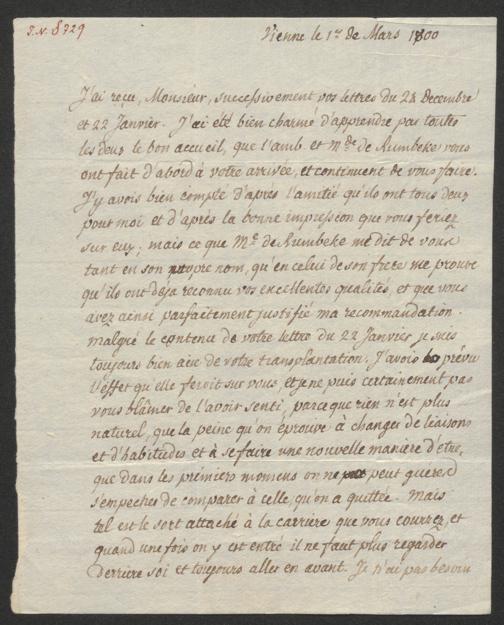 J.N. 8729
Vienne le 1.r de Mars 1800
J'ai reçu, Monsieur, successivement vos lettres du 28 Decembre
et 22 Janvier. J'ai été bien charmé d'apprendre pas toutes
les deux le bon accueil, que l'amb. et M.de de Rumbeke vous
ont fait d'abord à votre arrivée, et continuent de vous faire.
J'y avois bien compté d'après l'amitié qu'ils ont tous deux
pour moi et d'après la bonne impression que vous feriez
sur eux, mais ce que M.e de Rumbeke me dit de vous
tant en son propre nom, qu'en celui de son frere me prouve
qu'ils ont deja reconnu vos excellentes qualités, et que vous
avez ainsi parfaitement justifié ma recommandation.
malgré le contenu de votre lettre du 22 Janvier je suis
toujours bien aise de votre transplantation. J'avois prévu
l'effet qu'elle feroit sur vous, et je ne puis certainement pas
vous blâmer de l'avoir senti, parceque rien n'est plus
naturel, que la peine qu'on éprouve à changer de liaisons
et d'habitudes et à se faire une nouvelle manière d'etre,
que dans les premiers momens on ne peut gueres
s'empecher de comparer à celle, qu'on a quittée. Mais
tel est le sort attaché à la carriere que vous courrez, et
quand une fois on y est entré il ne faut plus regarder
derriere soi et toujours aller en avant. Je n'ai pas besoin